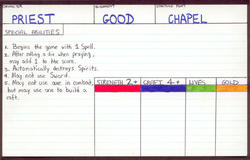 PRIEST GOOD CHAPEL
SPECIAL ABILITIES
1. Begins the game with 1 Spell.
2. After rolling a die when praying, may add 1 to the score.
3. Automatically destroys Spirits.
4. May not use Sword.
5. May not use axe in combat but may use axe to build a raft.
STRENGTH 2+ CRAFT 4+ LIVES GOLD